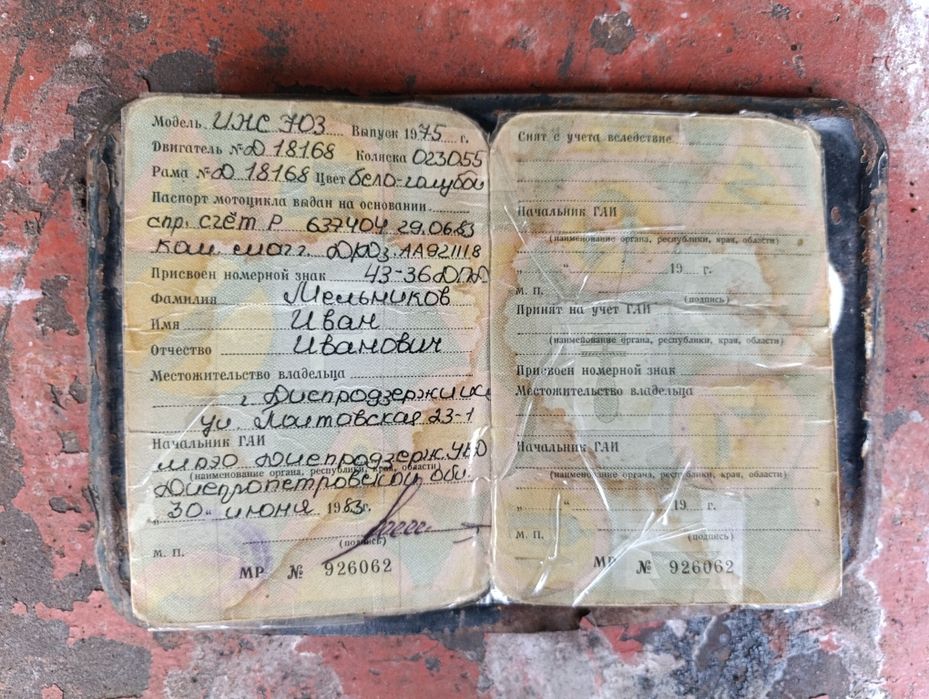 Модель ИЖС 703 Выпуск 1975 г.
Двигатель № Д 18168 Коляска 023055
Рама № Д 18168 Цвет бело-голубой
Паспорт мотоцикла выдан на основании
спр. счёт Р 637404 29.06.83
ком. маг. ДРОз. АА921118
Присвоен номерной знак 43-36 ДПД
Фамилия Мельников
Имя Иван
Отчество Иванович
Местожительство владельца
г. Днепродзержинск
ул. Полтовская 23-1
Начальник ГАИ
МРЭО Днепродзерж. УВД
(наименование органа, республики, края, области)
Днепропетровской обл.
„30“ июня 1983г.
(подпись)
М. П.
МР № 926062
Снят с учета вследствие
Начальник ГАИ
(наименование органа, республики, края, области)
„ “ 19 г.
М. П.
(подпись)
Принят на учет ГАИ
(наименование органа, республики, края, области)
Присвоен номерной знак
Местожительство владельца
Начальник ГАИ
(наименование органа, республики, края, области)
„ “ 19 г.
М. П.
(подпись)
МР № 926062